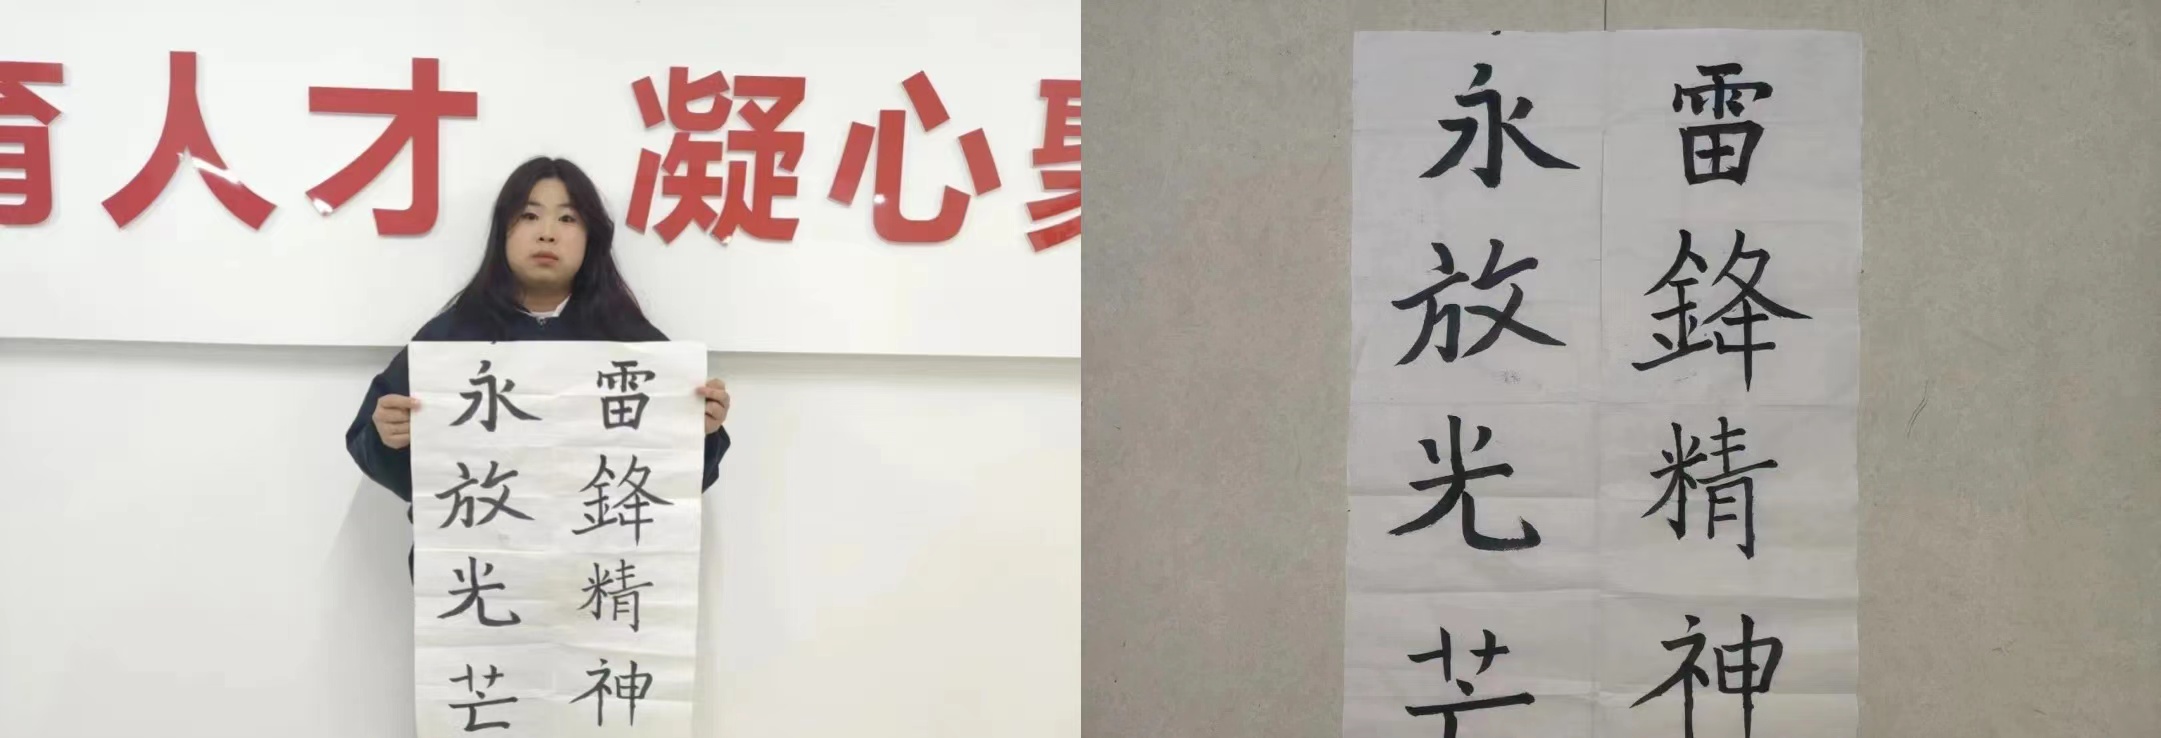 育人才 凝心聚
雷鋒精神
永放光芒
雷鋒精神
永放光芒